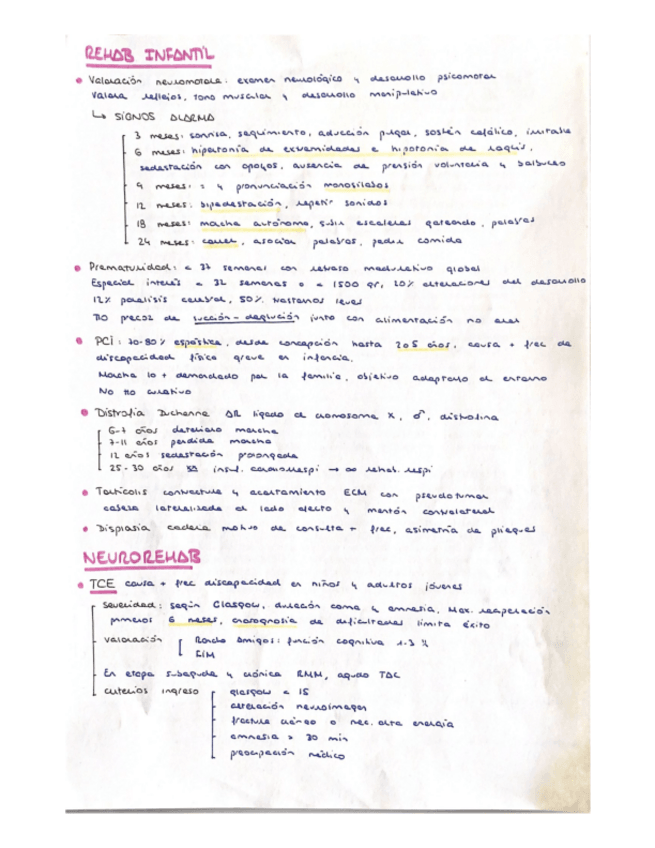 REHAB INFANTIL
Valoración neuromotora: examen neurológico y desarrollo psicomotor
Valora reflejos, tono muscular y desarrollo manipulativo
↳ SIGNOS ALARMA
3 meses: sonrisa, seguimiento, aducción pulgar, sostén cefálico, irritable
6 meses: hipertonía de extremidades e hipotonía de tronco,
sedestación con apoyos, ausencia de prensión voluntaria y balbuceo
9 meses: = y pronunciación monosílabos
12 meses: bipedestación, repetir sonidos
18 meses: marcha autónoma, subir escaleras gateando, palabras
24 meses: correr, asociar palabras, pedir comida
Prematuridad: < 37 semanas con retraso madurativo global
Especial interés < 32 semanas o < 1500 gr, 20% alteraciones del desarrollo
12% parálisis cerebral, 50% trastornos leves
precoz de succión - deglución junto con alimentación no oral
PCI: 70-80% espástica, desde concepción hasta 2 o 5 años, causa + frec de
discapacidad física grave en infancia.
Marcha lo + demandado por la familia, objetivo adaptarlo al entorno
No tto curativo
Distrofia Duchenne AR ligado al cromosoma X, ♂, distrofina
6-7 años deterioro marcha
7-11 años perdida marcha
12 años sedestación prolongada
25-30 años insuf. cardiorrespi → rehab. respi
Torticolis contractura y acortamiento ECM con pseudotumor
cabeza lateralizada al lado afecto y mentón contralateral
Displasia cadera motivo de consulta + frec, asimetría de pliegues
NEUROREHAB
TCE causa + frec discapacidad en niños y adultos jóvenes
Severidad: según Glasgow, duración coma y amnesia, Max. recuperación
primeros 6 meses, anosognosia de dificultades limita éxito
valoración
Rancho Amigos: función cognitiva
FIM
En etapa subaguda y crónica RMM, aguda TAC
criterios ingreso
glasgow < 15
alteración neuroimagen
fractura cráneo o mec. alta energía
amnesia > 30 min
preocupación médico